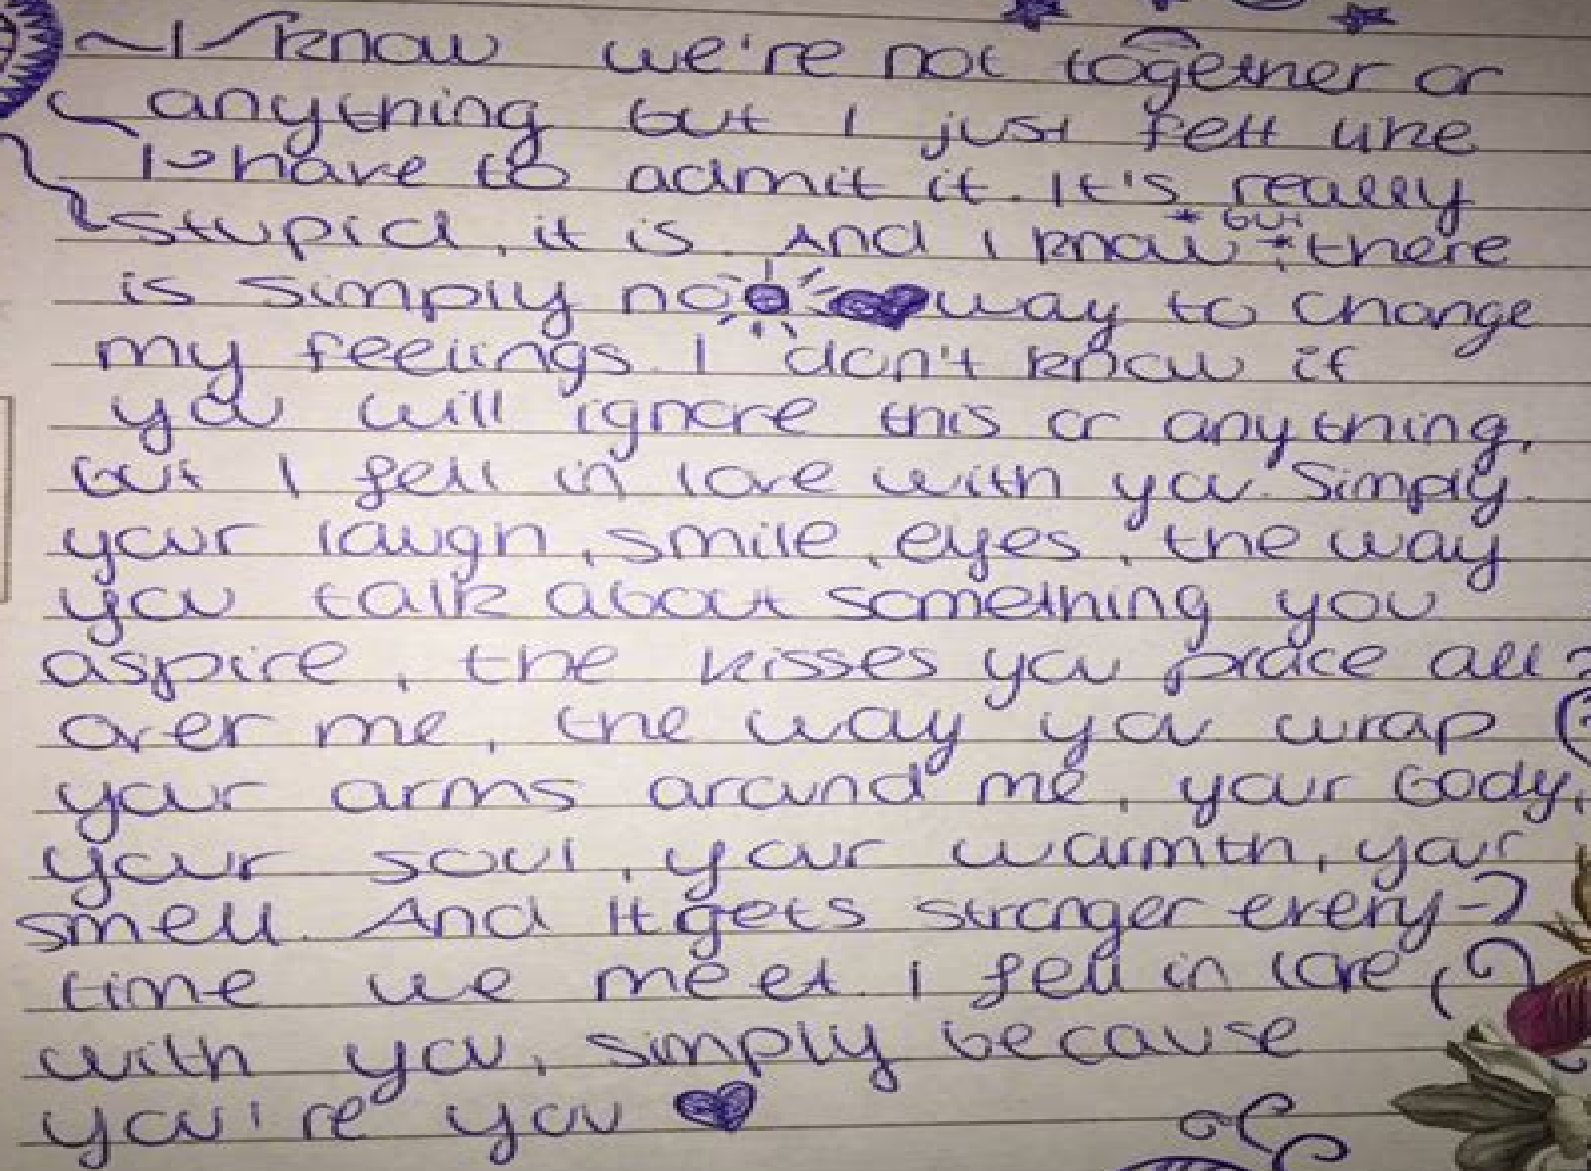 I know we're not together or
anything but I just felt like
I have to admit it. It's really
stupid, it is. And I know *but* there
is simply no way to change
my feelings. I don't know if
you will ignore this or anything,
but I fell in love with you. Simply.
your laugh, smile, eyes, the way
you talk about something you
aspire, the kisses you place all
over me, the way you wrap
your arms around me, your body,
your soul, your warmth, your
smell. And it gets stronger every-
time we meet. I fell in love
with you, simply because
you're you